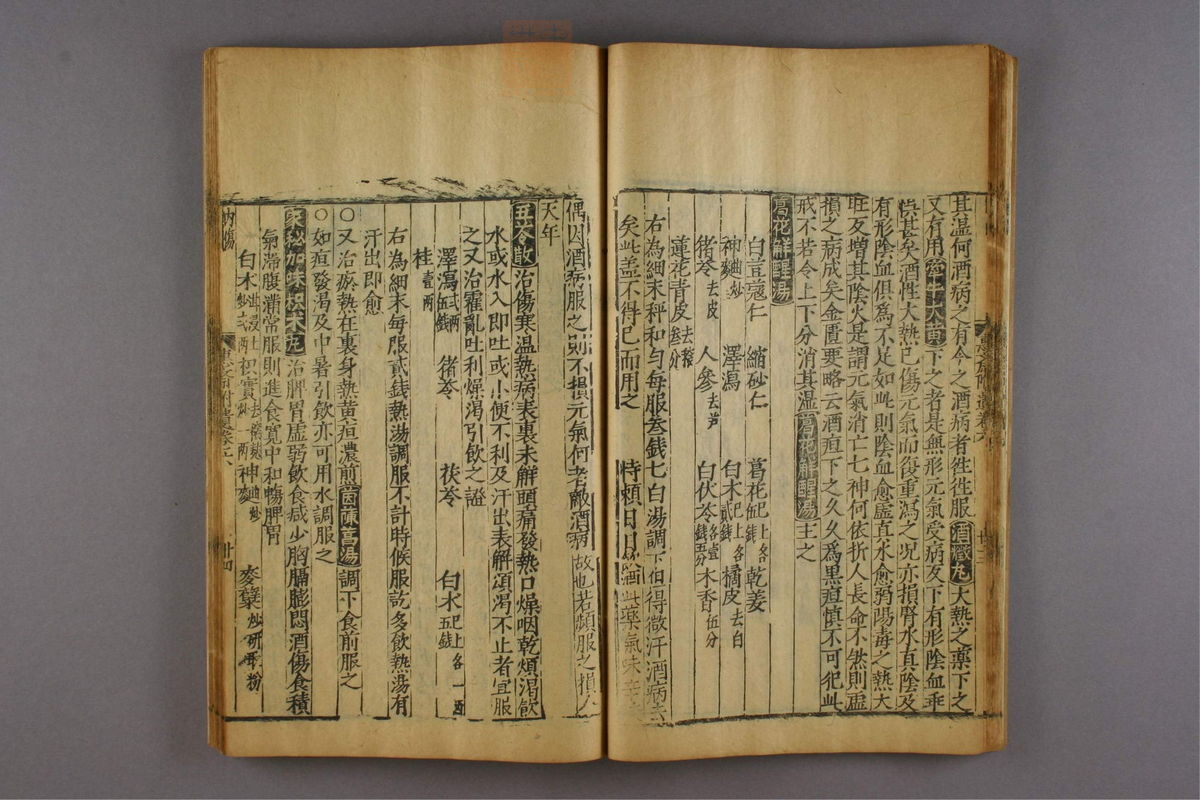 其温何酒病之有今之酒病者徃徃服酒癥丸大熱之藥下之
又有用牽牛大黄下之者是無形元氣受病反下有形陰血乖
悞甚矣酒性大熱已傷元氣而復重瀉之况亦損腎水真陰及
有形陰血俱爲不足如此則陰血愈虚真水愈弱陽毒之熱大
旺反增其陰火是謂元氣消亡七神何依折人長命不然則虚
損之病成矣金匱要略云酒疸下之久久爲黒疸慎不可犯此
戒不若令上下分消其温葛花解酲湯主之
葛花解酲湯
白荳蔻仁 縮砂仁 葛花已上各伍錢 乾姜
神麯炒 澤瀉 白术已上各貳錢 橘皮去白
猪苓去皮 人參去芦 白伏苓各壹錢五分 木香伍分
蓮花青皮去穰叁分
右為細末秤和勻每服叁錢七白湯調下但得微汗酒病去
矣此盖不得已而用之 時頼日日 酒此藥氣味辛
偶因酒病服之則不損元氣何者敵酒病故也若頻服之損人
天年
五苓散治傷寒温熱病表裏未解頭痛發熱口燥咽乾煩渴飲
水或水入即吐或小便不利及汗出表解煩渴不止者宜服
之又治霍亂吐利燥渴引飲之證
澤瀉貳兩伍錢 猪苓 茯苓 白术已上各一兩五錢
桂壹兩
右為細末每服貳錢熱湯調服不計時候服訖多飲熱湯有
汗出即愈
○又治瘀熱在裏身熱黄疸濃煎茵蔯蒿湯調下食前服之
○如疸發渴及中暑引飲亦可用水調服之
家秘加味枳术丸治脾胃虚弱飲食减少胸膈膨悶酒傷食積
氣滯腹滿常服則進食寛中和暢脾胃
白术 枳實 神麯炒 麥糵炒研取粉
内傷 廿四